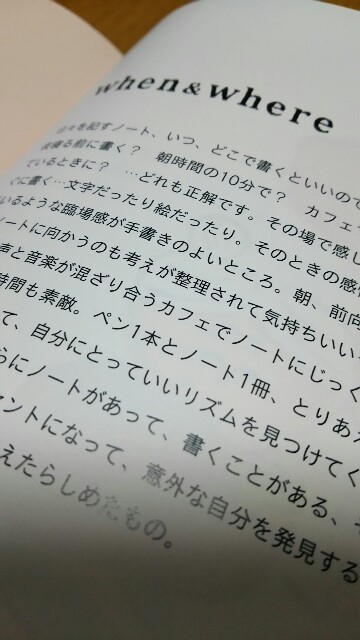 when & where
日々を記すノート、いつ、どこで書くといいので
夜寝る前に書く? 朝時間の10分で? カフェ
ているときに? …どれも正解です。その場で感じ
ぐに書く…文字だったり絵だったり。そのときの感
いるような臨場感が手書きのよいところ。朝、前向
ノートに向かうのも考えが整理されて気持ちいい
声と音楽が混ざり合うカフェでノートにじっく
時間も素敵。ペン1本とノート1冊、とりあ
て、自分にとっていいリズムを見つけてく
らにノートがあって、書くことがある、
セントになって、意外な自分を発見する
えたらしめたもの。